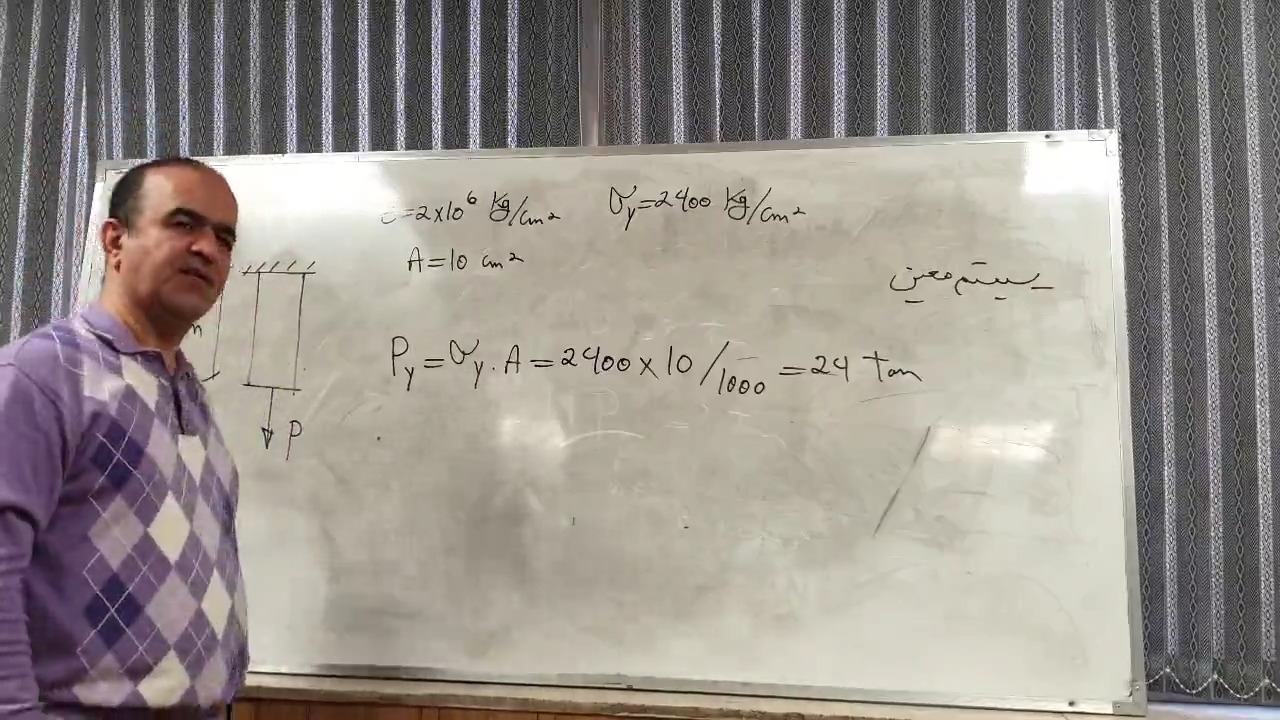 =2×10⁶ kg/cm² σy=2400 kg/cm²
A=10 cm²
سیستم معین
Py=σy.A=2400×10/1000=24 tan
P